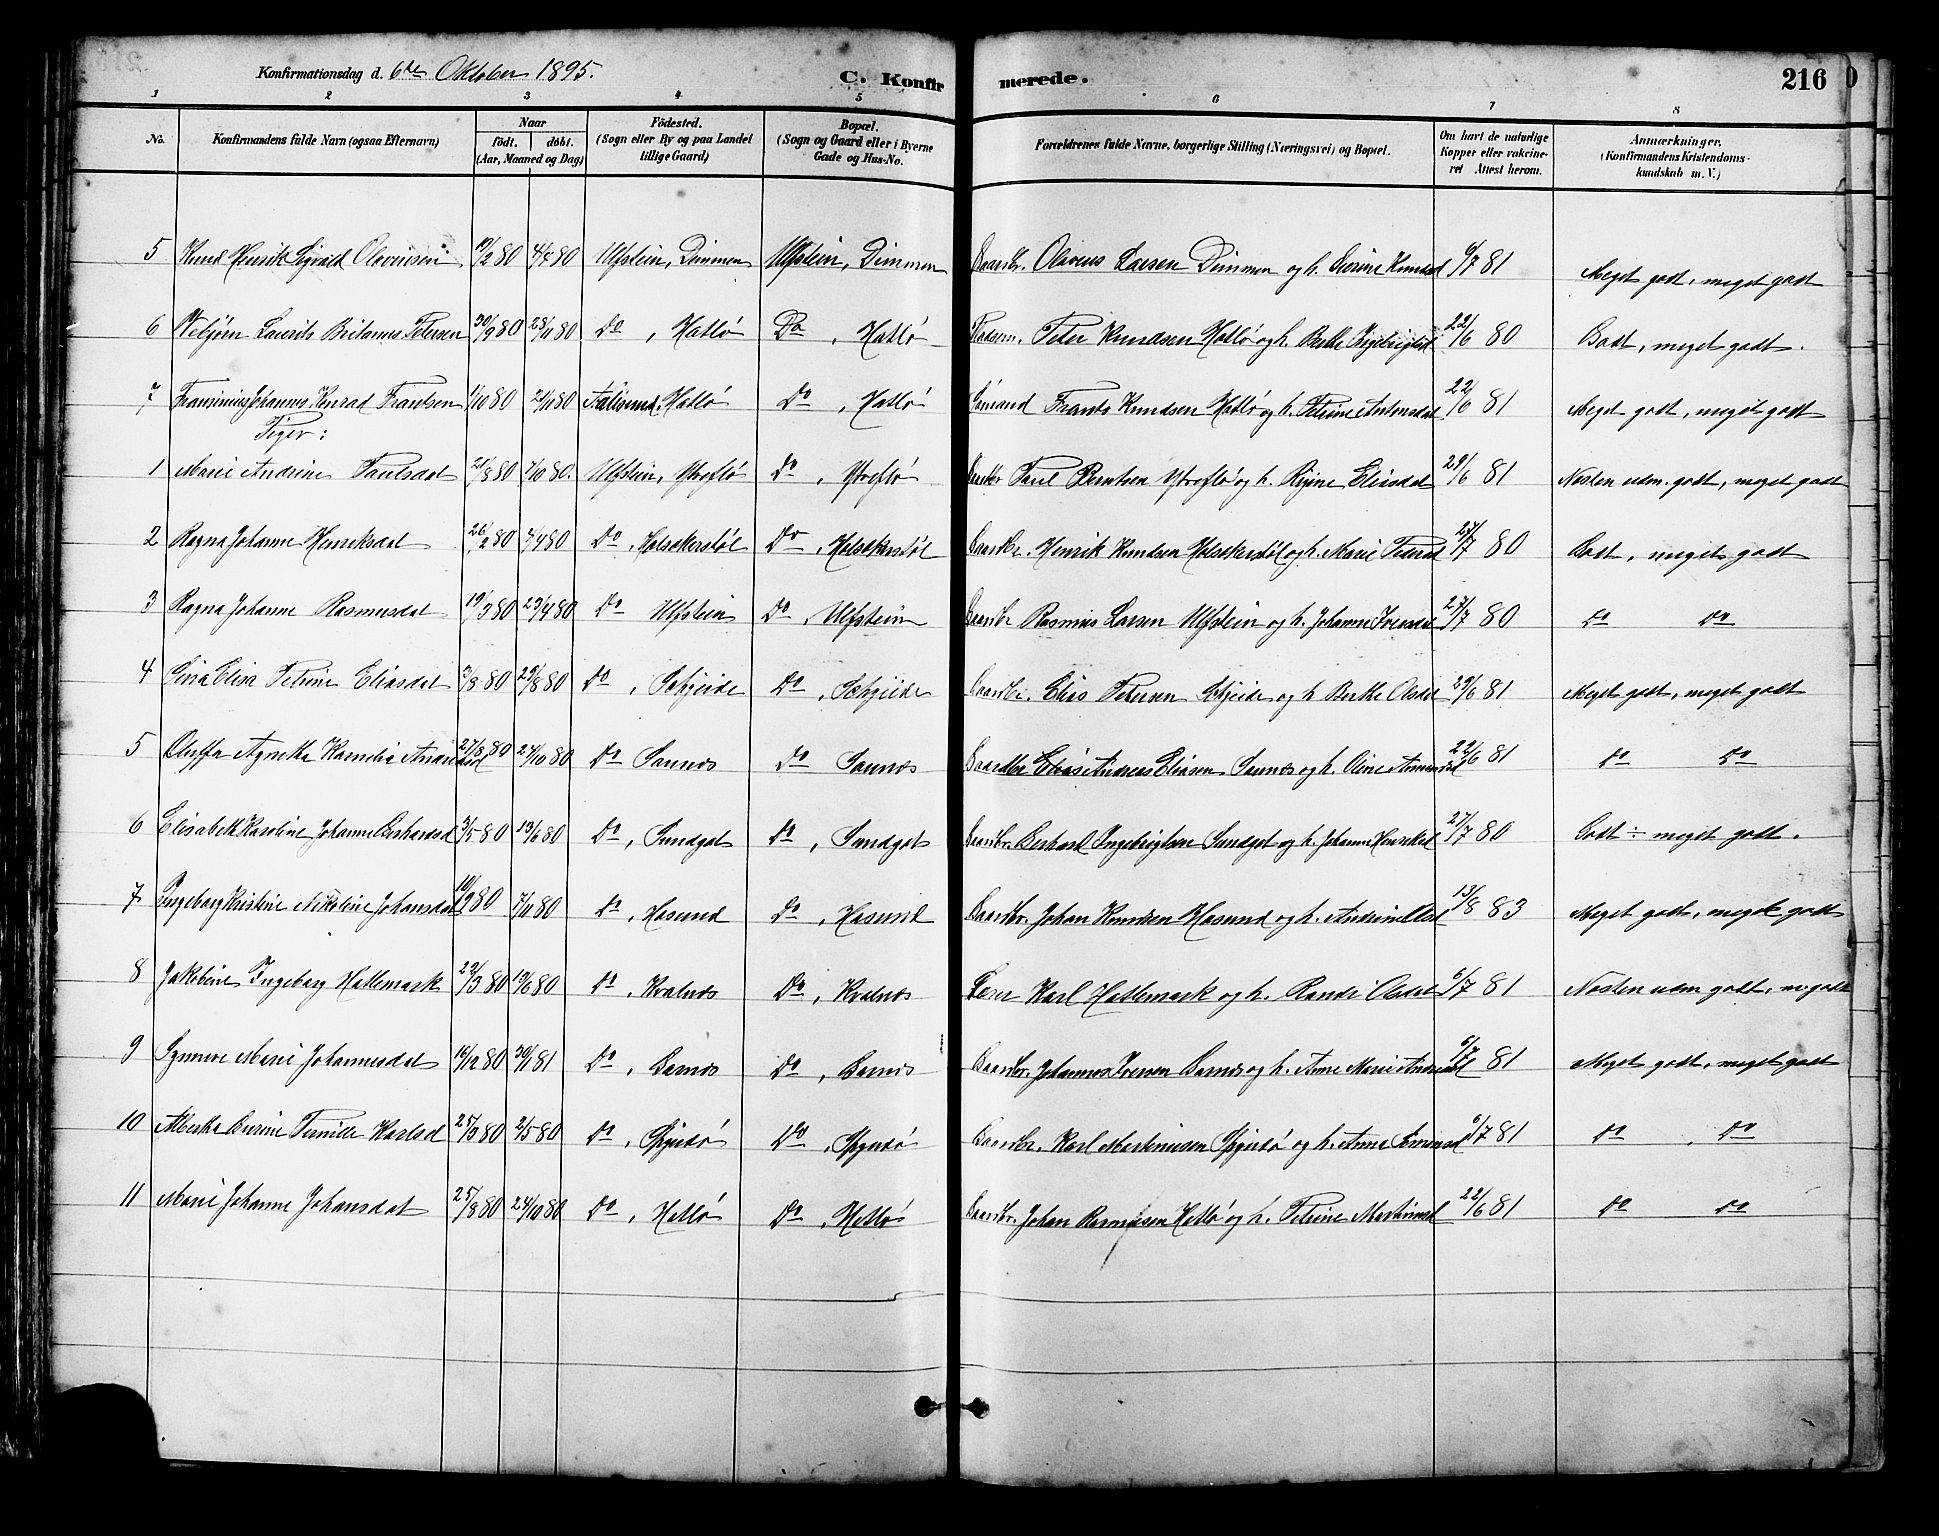 Konfirmationsdag d. 6te Oktober 1895. C. Konfirmerede. 216
1 2 3 4 5 6 7 8
No. Konfirmandens fulde Navn (ogsaa Efternavn) Naar födt. döbt. (Aar, Maaned og Dag) Födested. (Sogn eller By og paa Landet tillige Gaard) Bopæl. (Sogn og Gaard eller i Byerne Gade og Hus-No. Forældrenes fulde Navne, borgerlige Stilling (Næringsvei) og Bopæl. Om havt de naturlige Kopper eller vakcineret Attest herom. Anmærkninger. (Konfirmandens Kristendomskundskab m. V.)
5 Knud Henrik Sigvald Olavsen 19/2 80 4/4 80 Ulfstein, Dimmen Ulfstein, Dimmen Gaardbr. Olavus Larsen Dimmen og h. Knudsd 6/7 81 Meget godt, meget godt
6 Vebjørn Laurits Petersen 30/9 80 28/11 80 Do, Hatlø Do, Hatlø Peter Knudsen Hatlø og h. Berthe Ingebrigtsd 22/6 80 Godt, meget godt.
7 Fransinius Johannes Konrad Frantsen 1/10 80 21/11 80 Aalesund, Hatlø Do, Hatlø Frants Knudsen Hatlø og h. Petrine Antonsdat 22/6 81 Meget godt, meget godt
Piger:
1 Marie Andrine Paulsdat 21/8 80 3/10 80. Ulfstein, Ytreflø Do, Ytreflø Paul Berntsen Ytreflø og h. Elisdat 29/6 81 Næsten udm. godt, meget godt
2 Ragna Johanne Henriksdat 26/2 80 4/4 80 Do, Holsekerstøl Do, Holsekerstøl Gaardbr. Henrik Knudsen Holsekerstøl og h. Marie Petersd 27/7 80 Godt, meget godt
3 Ragna Johanne Rasmusdat 19/3 80 23/4 80 Do Ulfstein Do, Ulfstein Gaardbr Rasmus Larsen Ulfstein og h. Johanne Iversdat 27/7 80 do do
4 Elisa Petrine Eliasdat 3/8 80 29/8 80 Do, Schjeide Do, Schjeide Gaardbr. Elias Petersen Schjeide og h Berthe Olsdat 29/6 81 Meget godt, meget godt
5 Oluffa Agnetha Kornelia Andreasd 27/8 80 24/10 80 Do Saunes Do Saunes Gaardbr Elias Andreas Eliasen Saunes og h. Oline 22/6 81 do do
6 Elisabeth Karoline Johanne Berhardsd 3/5 80 13/6 80 Do, Sundgot Do, Sundgot Gaardbr. Berhard Ingebrigtsen Sundgot og h. Johanne Henriksd 27/7 80 Godt ÷ meget godt.
7 Ingeborg Kristine Nikoline Johansdat 19/9 80 7/11 80 Do, Hasund Do, Hasund Gaardbr. Johan Knudsen Hasund og h. Andrine Olsd 13/8 83 Meget godt, meget godt
8 Jakobine Ingeborg Hatlemark 29/3 80 13/6 80 Do, Kvalnes Do, Kvalnes Lærer Karl Hatlemark og h. Randi Olsdat 6/7 81 Næsten udm godt, m. godt
9 Synnøve Marie Johannesdat 16/12 80 30/1 81 Do, Garnes Do, Garnes Gaardbr. Johannes Iversen Garnes og h. Anne Marie Andersd 6/7 81 Meget godt, meget godt
10 Karlsd 25/3 80 2/5 80 Do, Spjutø Do, Spjutø Gaardbr. Karl Martinusen Spjutø og h. Anne 6/7 81 do, do
11 Marie Johanne Johansdat 25/8 80 24/10 80 Do, Hatlø Do, Hatlø Gaardbr. Johan Rasmusen Hatlø og h. Petrine Martinusd 22/6 81 do do